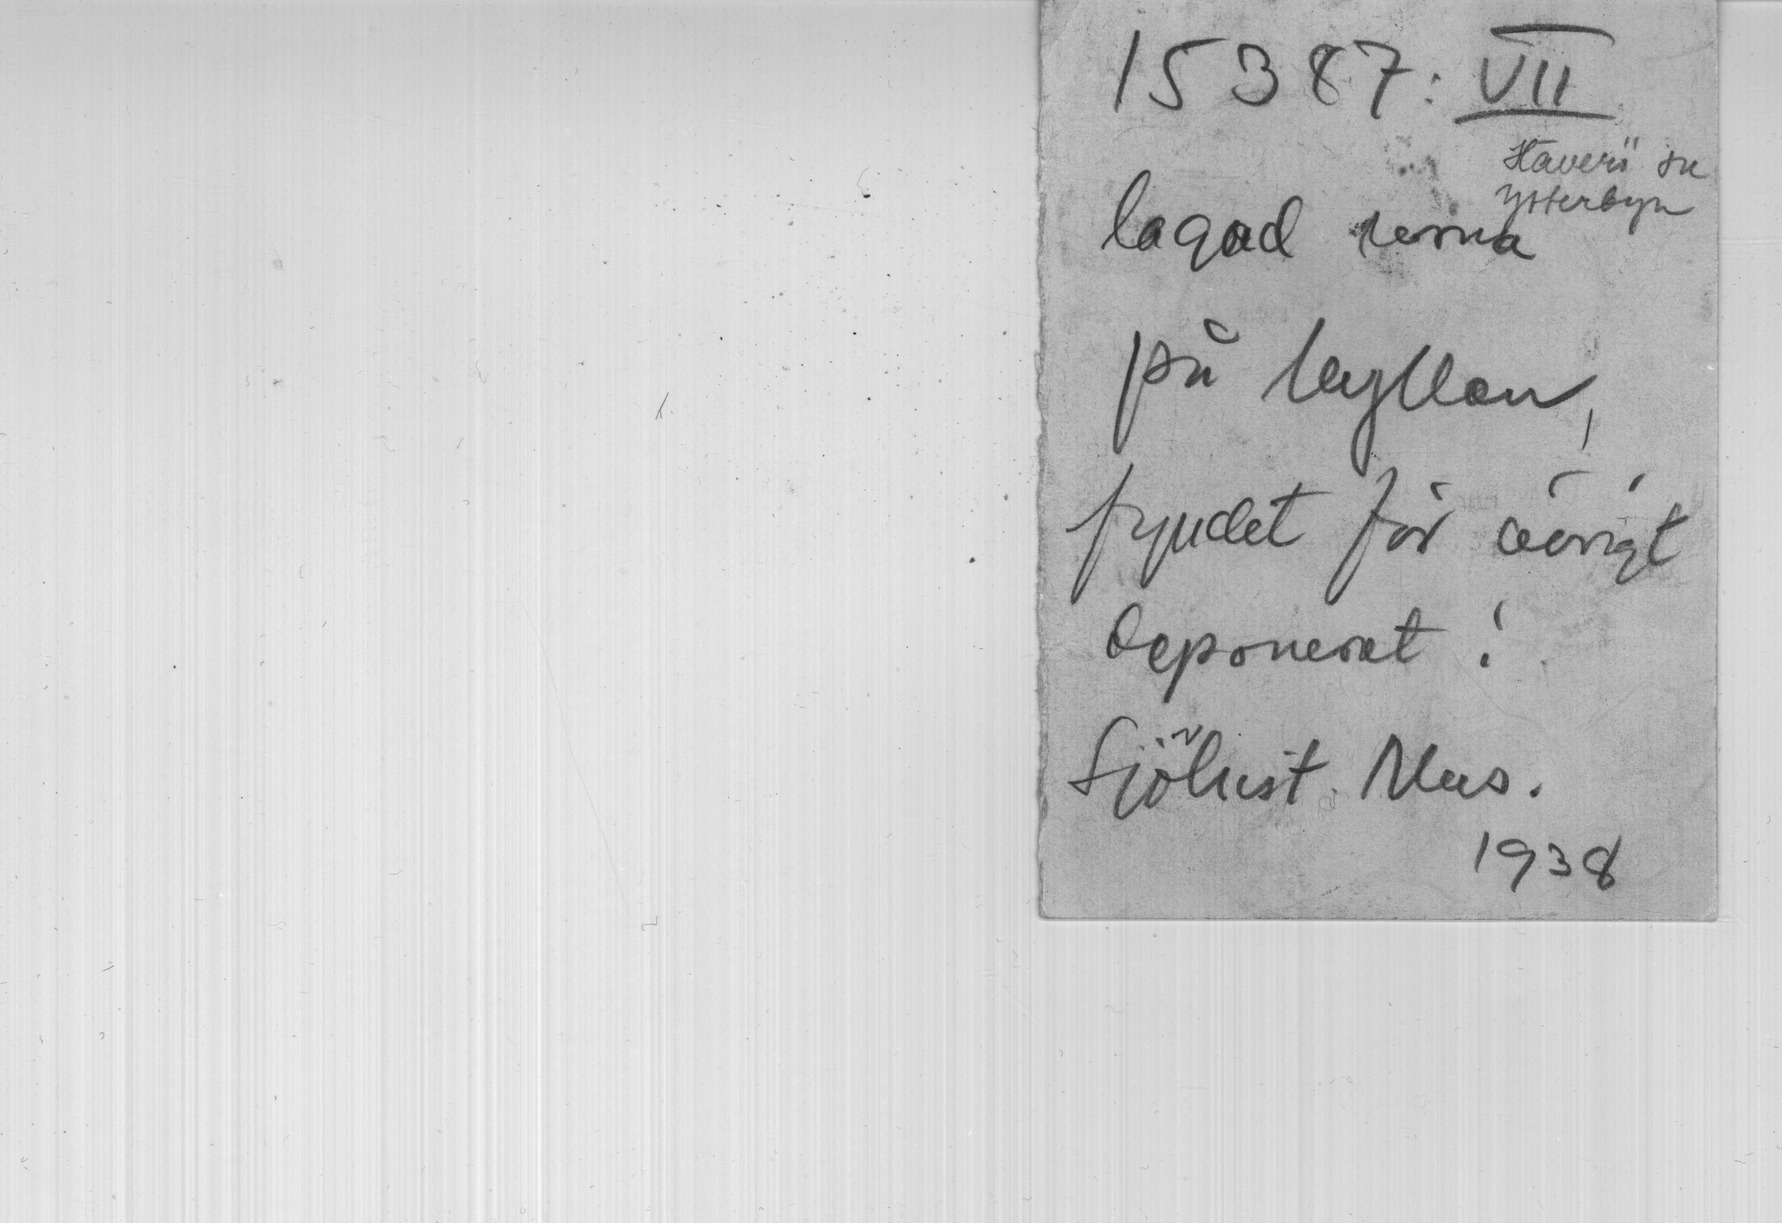 15387: VII
Häverö sn
Ysterbyn
lagad remna
på hyllan,
fyndet för övrigt
deponerat!
Sjöhist. Mus.
1938